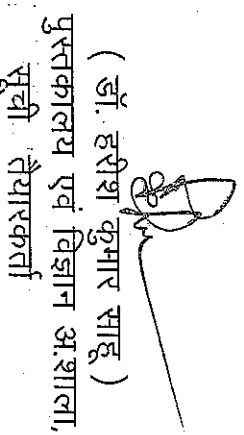 ( डॉ. हरीश कुमार साहू )
पुस्तकालय एवं विज्ञान अ.शाला,
सूची तैयारकर्ता